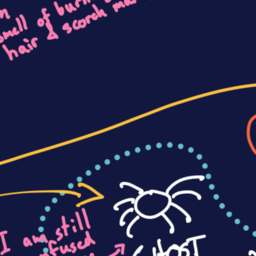 smell of burn
hair & scorch ma
I am still
GHOST